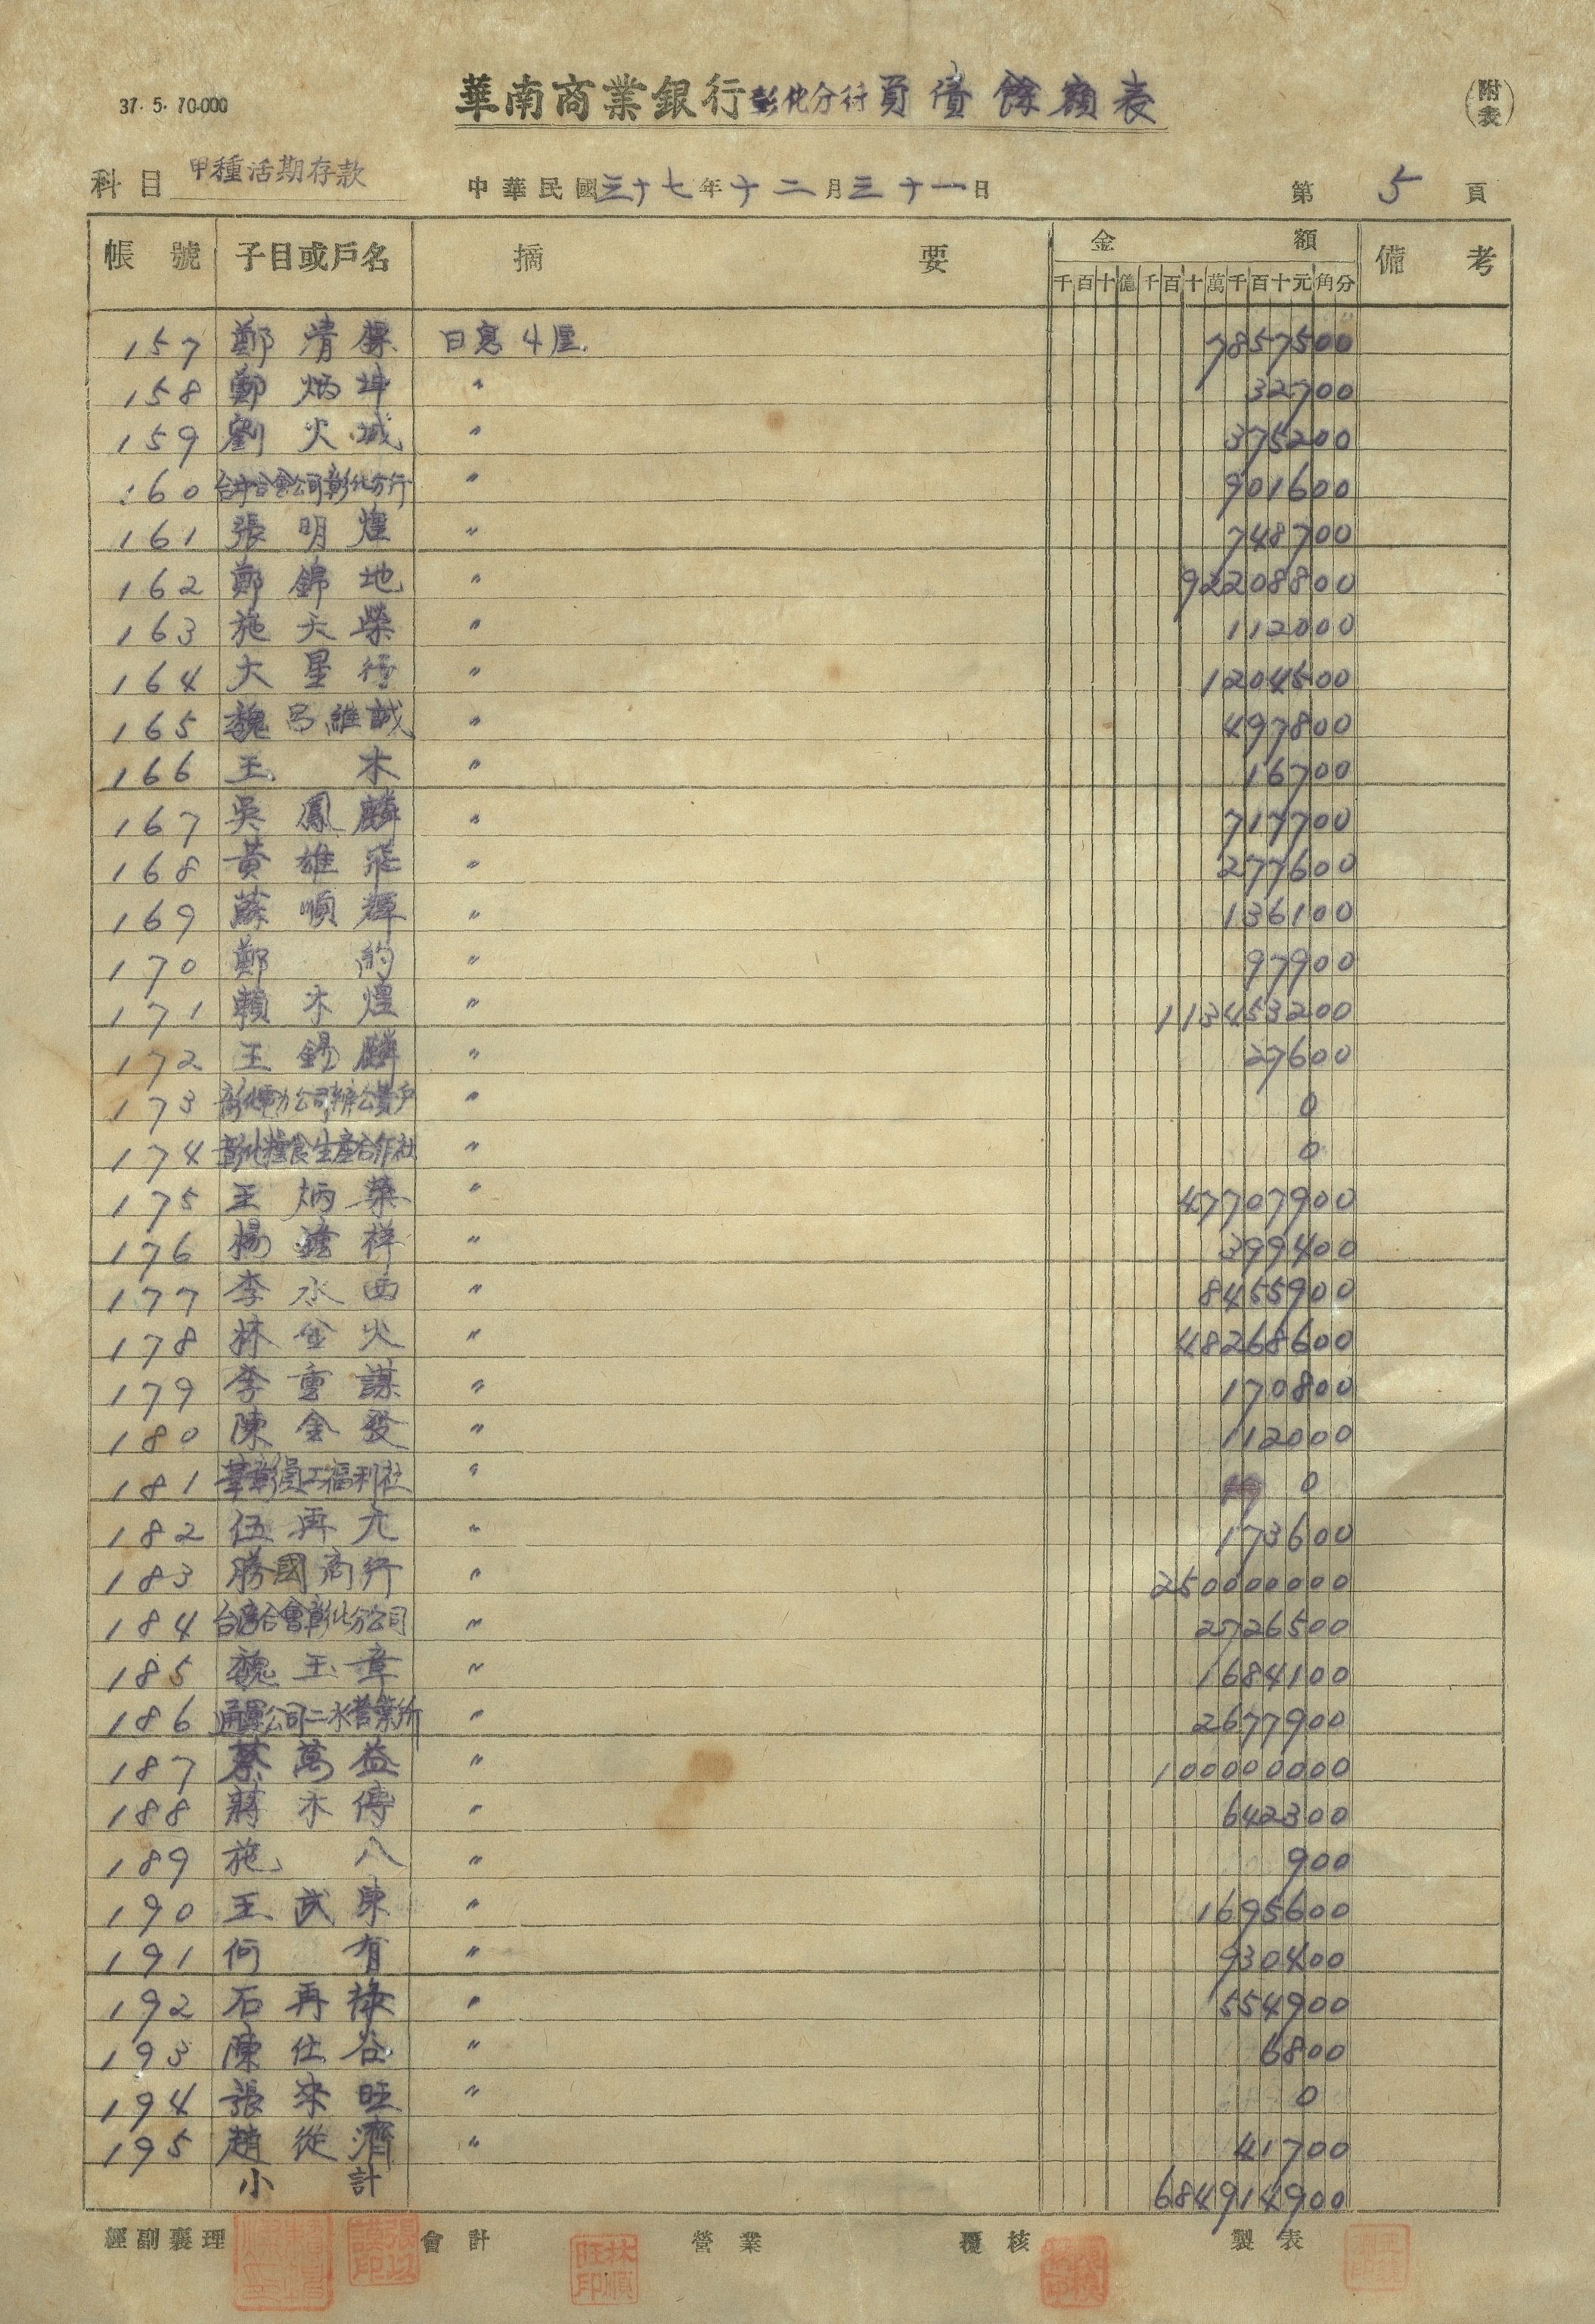 37. 5. 70.000
華南商業銀行彰化分行負債餘額表
(附表)
科目 甲種活期存款 中華民國三十七年十二月三十一日 第 5 頁
帳號 子目或戶名 摘要 金額 備考
千百十億千百十萬千百十元角分
157 鄭清 日息4厘 7857500
158 鄭炳坤 〃 32700
159 劉火城 〃 375200
160 台中合會公司彰化分行 〃 901600
161 張明煌 〃 748700
162 鄭錦地 〃 92208800
163 施天榮 〃 112000
164 大星行 〃 1204500
165 魏呂維誠 〃 497800
166 王木 〃 16700
167 吳鳳麟 〃 717700
168 黃雄飛 〃 277600
169 蘇順輝 〃 136100
170 鄭約 〃 97900
171 賴木煌 〃 113453200
172 王錫麟 〃 27600
173 彰化電力公司辦公費戶 〃 0
174 彰化糧食生產合作社 〃 0
175 王炳葉 〃 47707900
176 楊祥 〃 399400
177 李水西 〃 8455900
178 林金火 〃 48268600
179 李重謀 〃 170800
180 陳金發 〃 112000
181 華彰員工福利社 〃 0
182 伍再九 〃 173600
183 勝國商行 〃 250000000
184 台灣合會彰化分公司 〃 2726500
185 魏玉章 〃 1684100
186 通運公司二水營業所 〃 2677900
187 蔡萬益 〃 100000000
188 蔣木傳 〃 642300
189 施八 〃 900
190 王武東 〃 1695600
191 何有 〃 930400
192 石再祿 〃 554900
193 陳仕谷 〃 6800
194 張來旺 〃 0
195 趙從濟 〃 41700
小計 684914900
經副襄理 會計 營業 覆核 製表
張以謨印 林順旺印